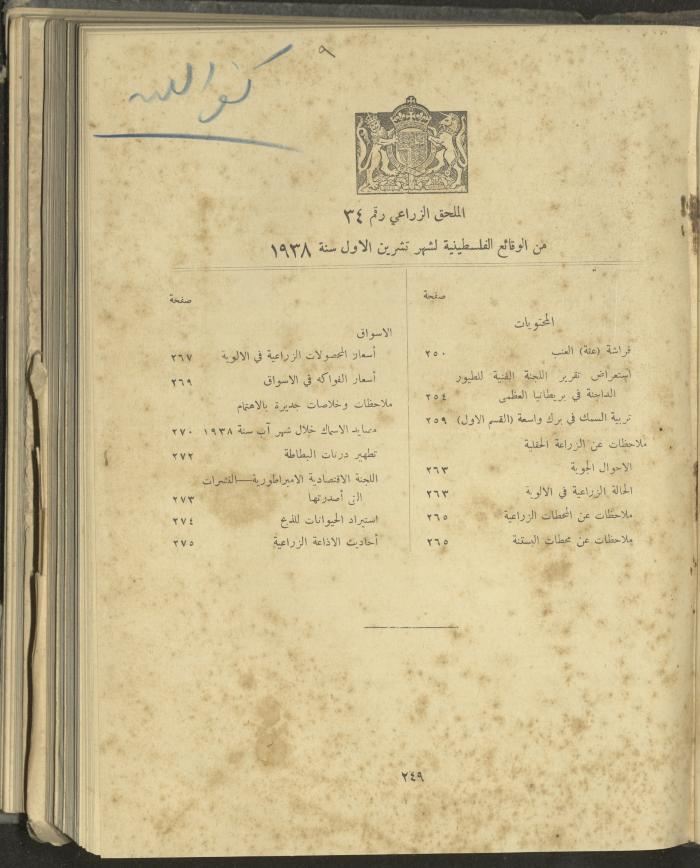 ٩
الملحق الزراعي رقم ٣٤
من الوقائع الفلسطينية لشهر تشرين الاول سنة ١٩٣٨
صفحة
المحتويات
فراشة (عثة) العنب ٢٥٠
استعراض تقرير اللجنة الفنية للطيور
الداجنة في بريطانيا العظمى ٢٥٤
تربية السمك في برك واسعة (القسم الاول) ٢٥٩
ملاحظات عن الزراعة الحقلية
الاحوال الجوية ٢٦٣
الحالة الزراعية في الالوية ٢٦٣
ملاحظات عن المحطات الزراعية ٢٦٥
ملاحظات عن محطات البستنة ٢٦٥
صفحة
الاسواق
أسعار المحصولات الزراعية في الالوية ٢٦٧
أسعار الفواكه في الاسواق ٢٦٩
ملاحظات وخلاصات جديرة بالاهتمام
مصايد الاسماك خلال شهر آب سنة ١٩٣٨ ٢٧٠
تطهير درنات البطاطة ٢٧٢
اللجنة الاقتصادية الامبراطورية—النشرات
التي أصدرتها ٢٧٣
استيراد الحيوانات للذبح ٢٧٤
أحاديث الاذاعة الزراعية ٢٧٥
٢٤٩